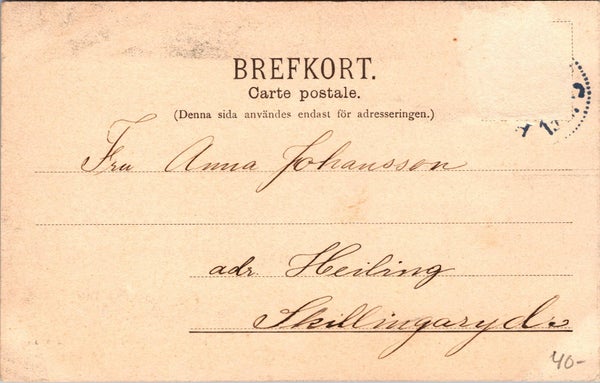 BREFKORT.
Carte postale.
(Denna sida användes endast för adresseringen.)
Fru Anna Johansson
adr. Heiling
Skillingaryd
40-